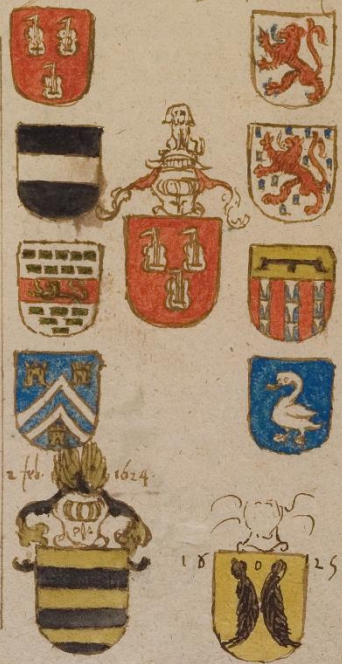 2 feb. 1624.
18 0 25